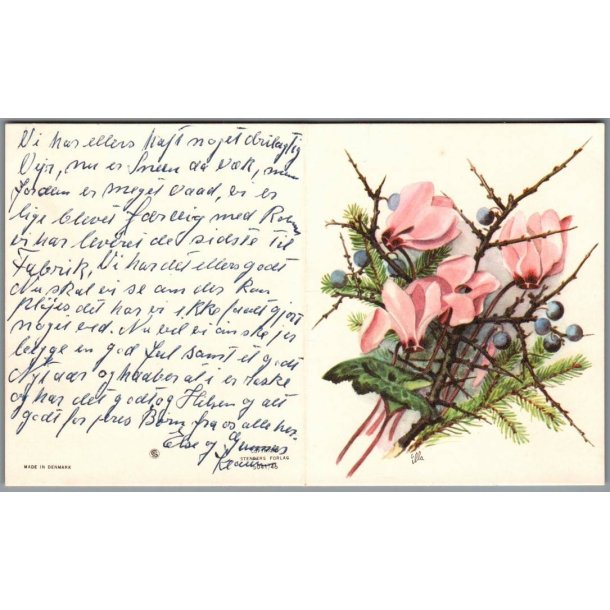 Vi har ellers haft noget drilagtig
Vejr, nu er Sneen da væk, men
Jorden er meget vaad, vi er
lige blevet færdig med Roerne
vi har leveret de sidste til
Fabrik, Vi har det ellers godt
Nu skal vi se om der kan
pløjes det har vi ikke faaet gjort
noget ved. Nu vil vi ønske jer
begge en god Jul samt et godt
Nytaar og haaber at i er raske
og har det godt og Hilsen og alt
godt for jeres Børn fra os alle her.
Else og
MADE IN DENMARK
STENDERS FORLAG
Ella